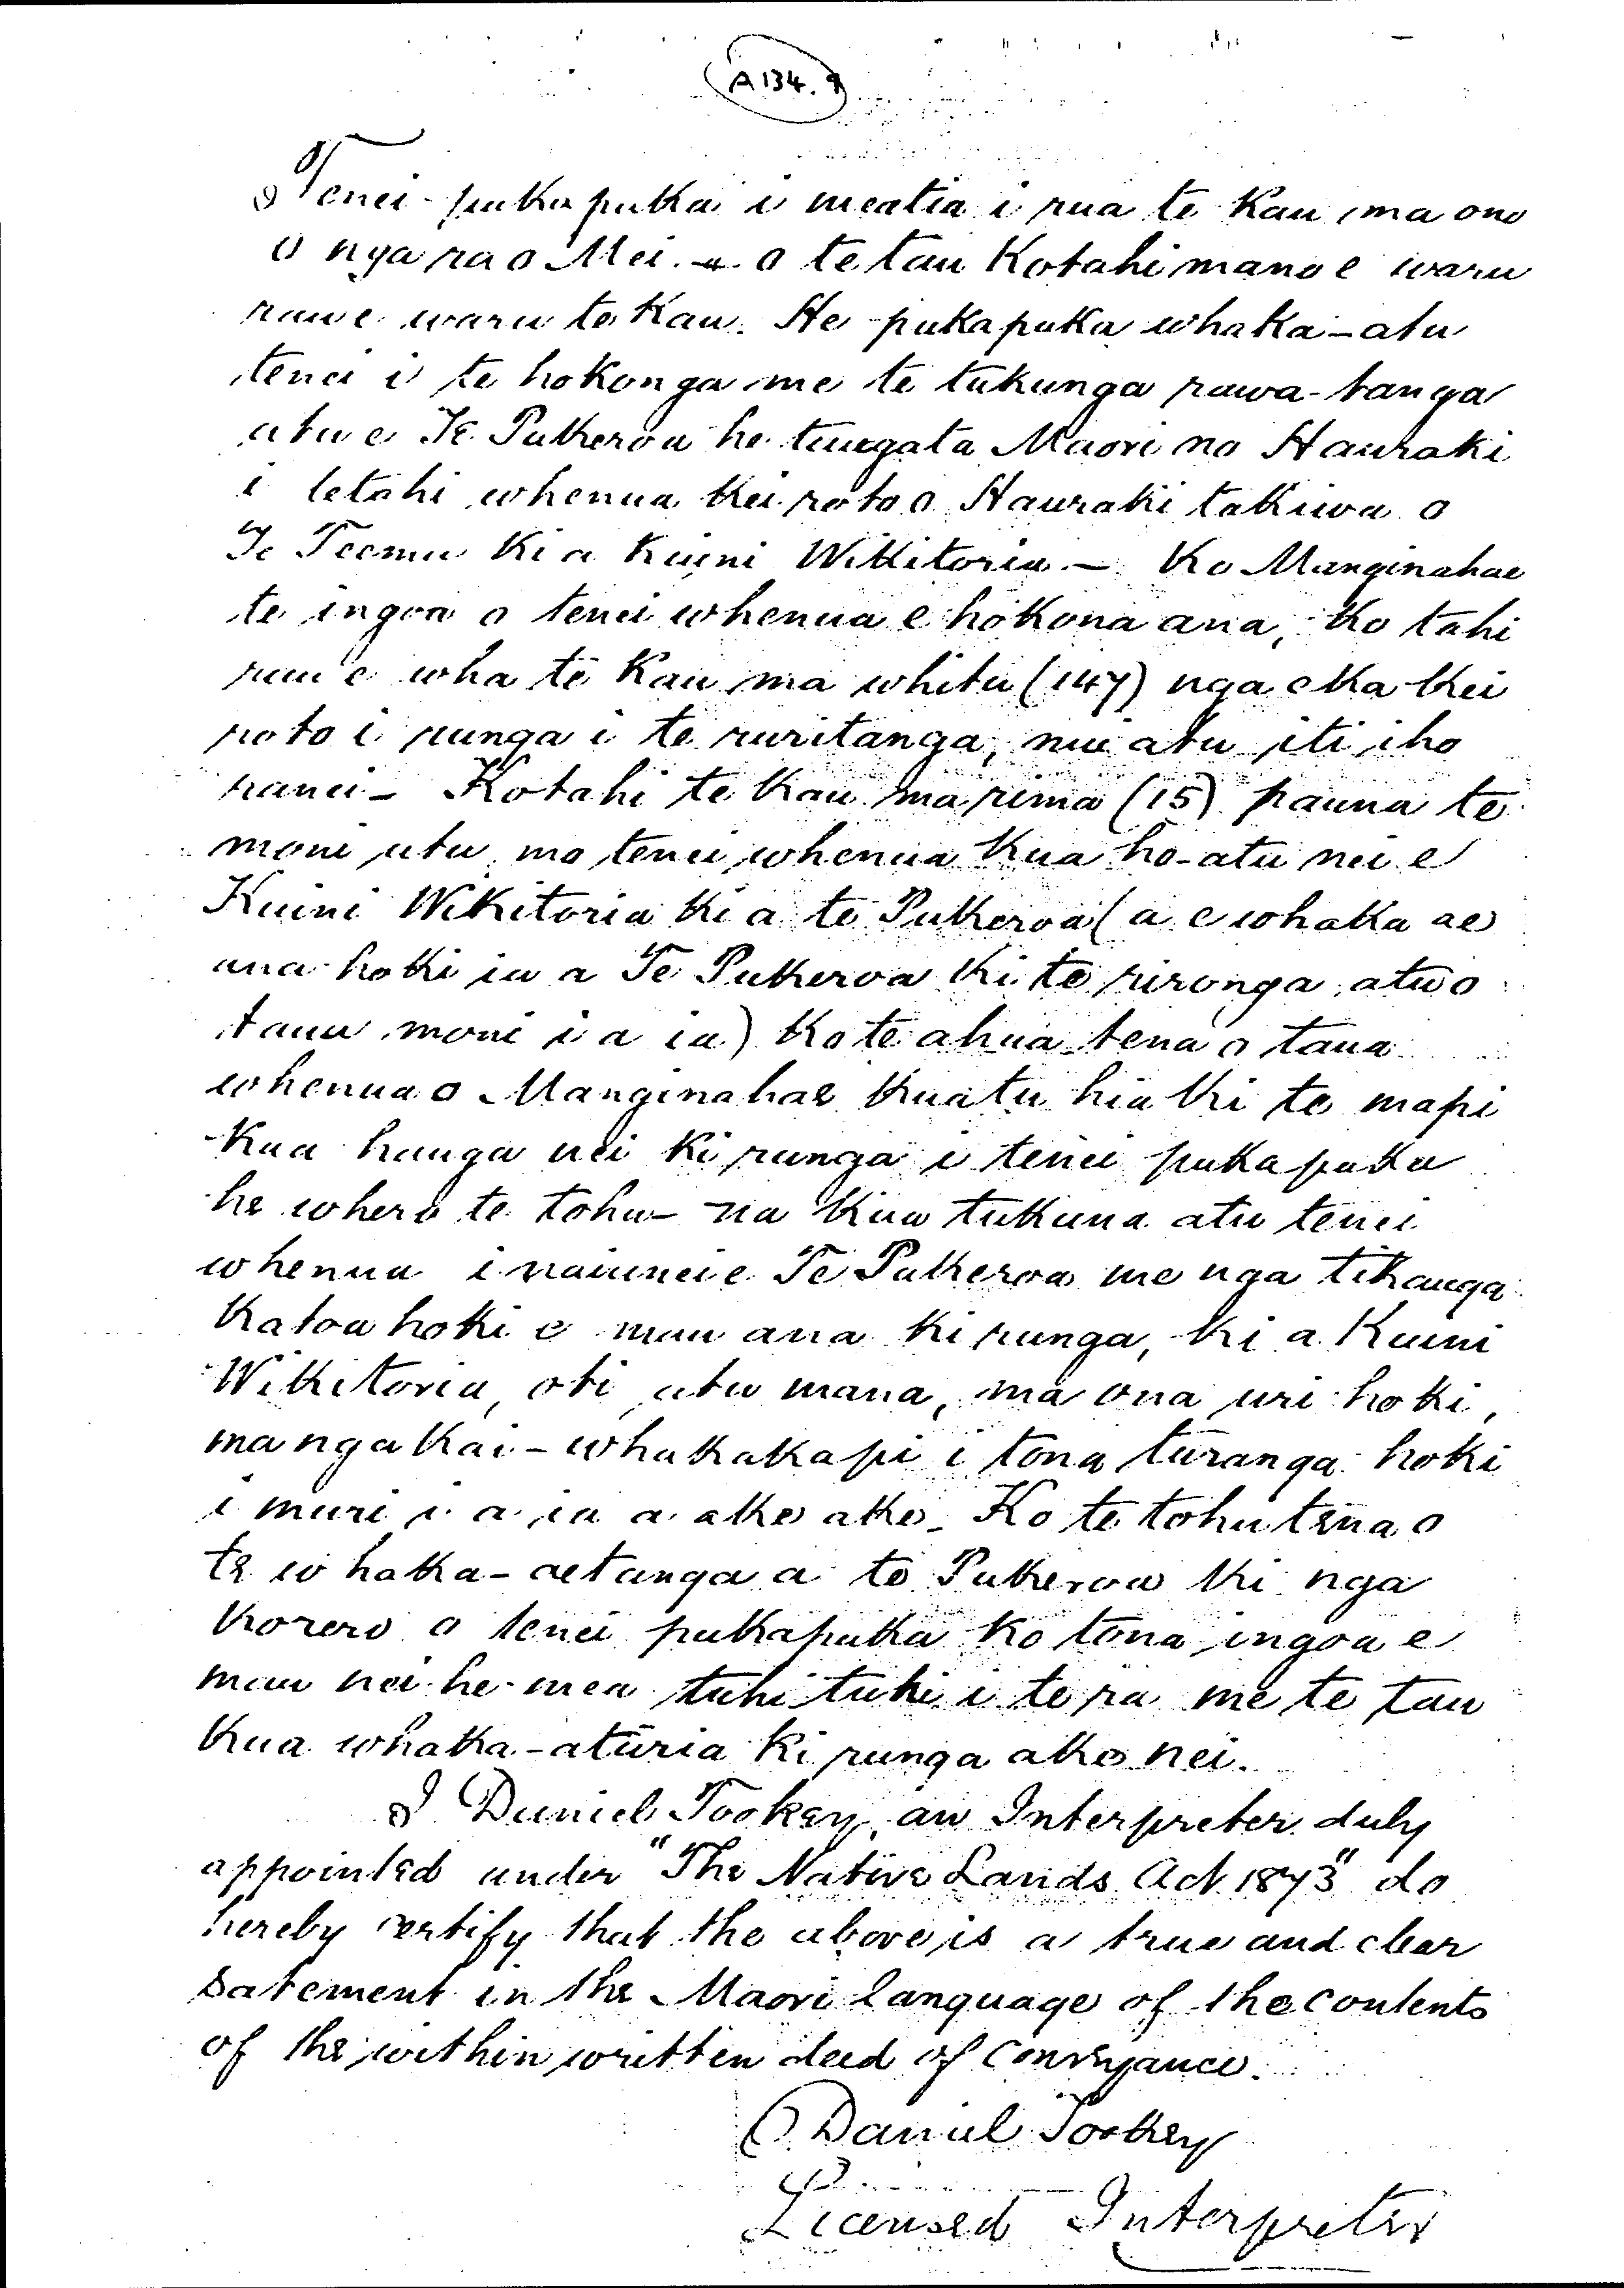 A134.9
Tenei pukapuka i meatia i rua te kau ma ono
o nga ra o Mei. - o te tau Kotahi mano e waru
rau e waru te kau. He pukapuka whaka-atu
tenei i te hokonga me te tukunga rawa-tanga
atu e Te Pukeroa he tangata Maori no Hauraki
i tetahi whenua kei roto o Hauraki takiwa o
Te Teemu ki a Kuini Wikitoria. - Ko Manginahae
te ingoa o tenei whenua e hokona ana, Ko tahi
rau e wha te kau ma whitu (147) nga eka kei
roto i runga i te ruritanga, nui atu iti iho
ranei - Kotahi te kau ma rima (15) pauna te
moni utu mo tenei whenua kua ho-atu nei e
Kuini Wikitoria ki a te Pukeroa (a e whaka ae
ana hoki ia a Te Pukeroa ki te rironga atu o
taua moni i a ia) Ko te ahua tena o taua
whenua o Manginahae kua tu hia ki te mapi
kua hanga nei ki runga i tenei pukapuka
he whero te tohu - na kua tukuna atu tenei
whenua inaianei e Te Pukeroa me nga tikanga
katoa hoki e mau ana ki runga, ki a Kuini
Wikitoria, oti atu mana, ma ona uri hoki,
ma nga kai-whakakapi i tona turanga hoki
i muri i a ia a ake ake - Ko te tohu tena o
te whaka-aetanga a te Pukeroa ki nga
korero o tenei pukapuka ko tona ingoa e
mau nei he mea tuhi tuhi i te ra me te tau
kua whaka-aturia ki runga ake nei.
I Daniel Tookey, an Interpreter duly
appointed under "The Native Lands Act 1873" do
hereby certify that the above is a true and clear
satement in the Maori language of the contents
of the within written deed of Conveyance.
Daniel Tookey
Licensed Interpreter